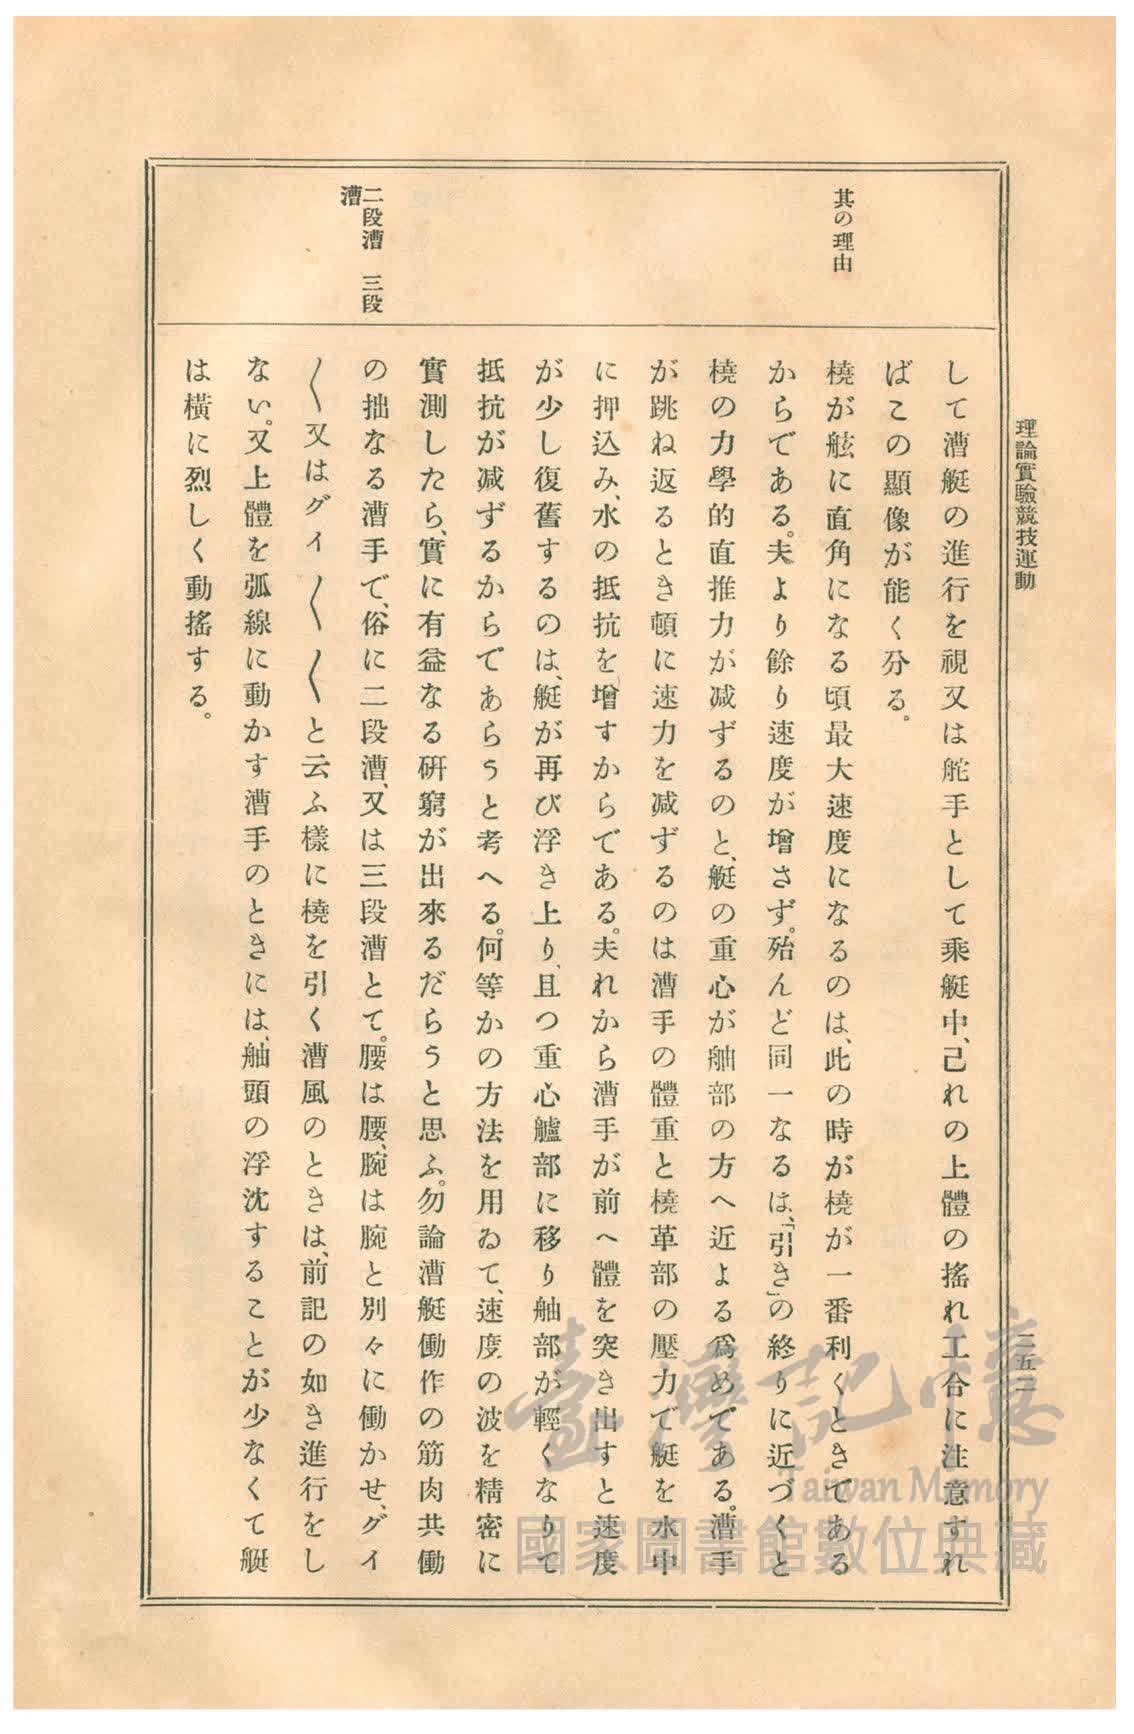 理論實驗競技運動
二五二
其の理由
二段漕　三段
漕
して漕艇の進行を視又は舵手として乘艇中、己れの上體の搖れ工合に注意すれ
ばこの顯像が能く分る。
橈が舷に直角になる頃最大速度になるのは、此の時が橈が一番利くときである
からである。夫より餘り速度が增さず。殆んど同一なるは、「引き」の終りに近づくと
橈の力學的直推力が減ずるのと、艇の重心が舳部の方へ近よる爲めである。漕手
が跳ね返るとき頓に速力を減ずるのは漕手の體重と橈革部の壓力で艇を水中
に押込み、水の抵抗を增すからである。夫れから漕手が前へ體を突き出すと速度
が少し復舊するのは、艇が再び浮き上り、且つ重心艫部に移り舳部が輕くなりて
抵抗が減ずるからであらうと考へる。何等かの方法を用ゐて、速度の波を精密に
實測したら、實に有益なる硏窮が出來るだらうと思ふ。勿論漕艇働作の筋肉共働
の拙なる漕手で、俗に二段漕、又は三段漕とて。腰は腰、腕は腕と別々に働かせ、グイ
〱又はグイ〱〱と云ふ樣に橈を引く漕風のときは、前記の如き進行をし
ない。又上體を弧線に動かす漕手のときには、舳頭の浮沈することが少なくて艇
は橫に烈しく動搖する。
臺灣記憶
Taiwan Memory
國家圖書館數位典藏